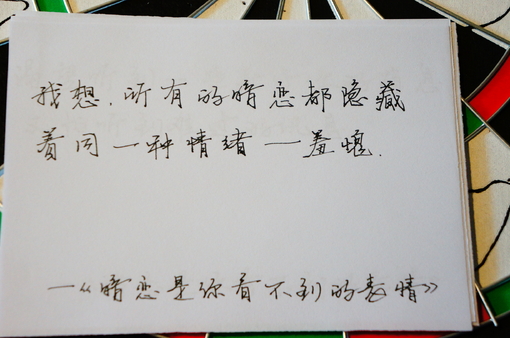 我想.所有的暗恋都隐藏
着同一种情绪—羞愧.
—《暗恋是你看不到的表情》